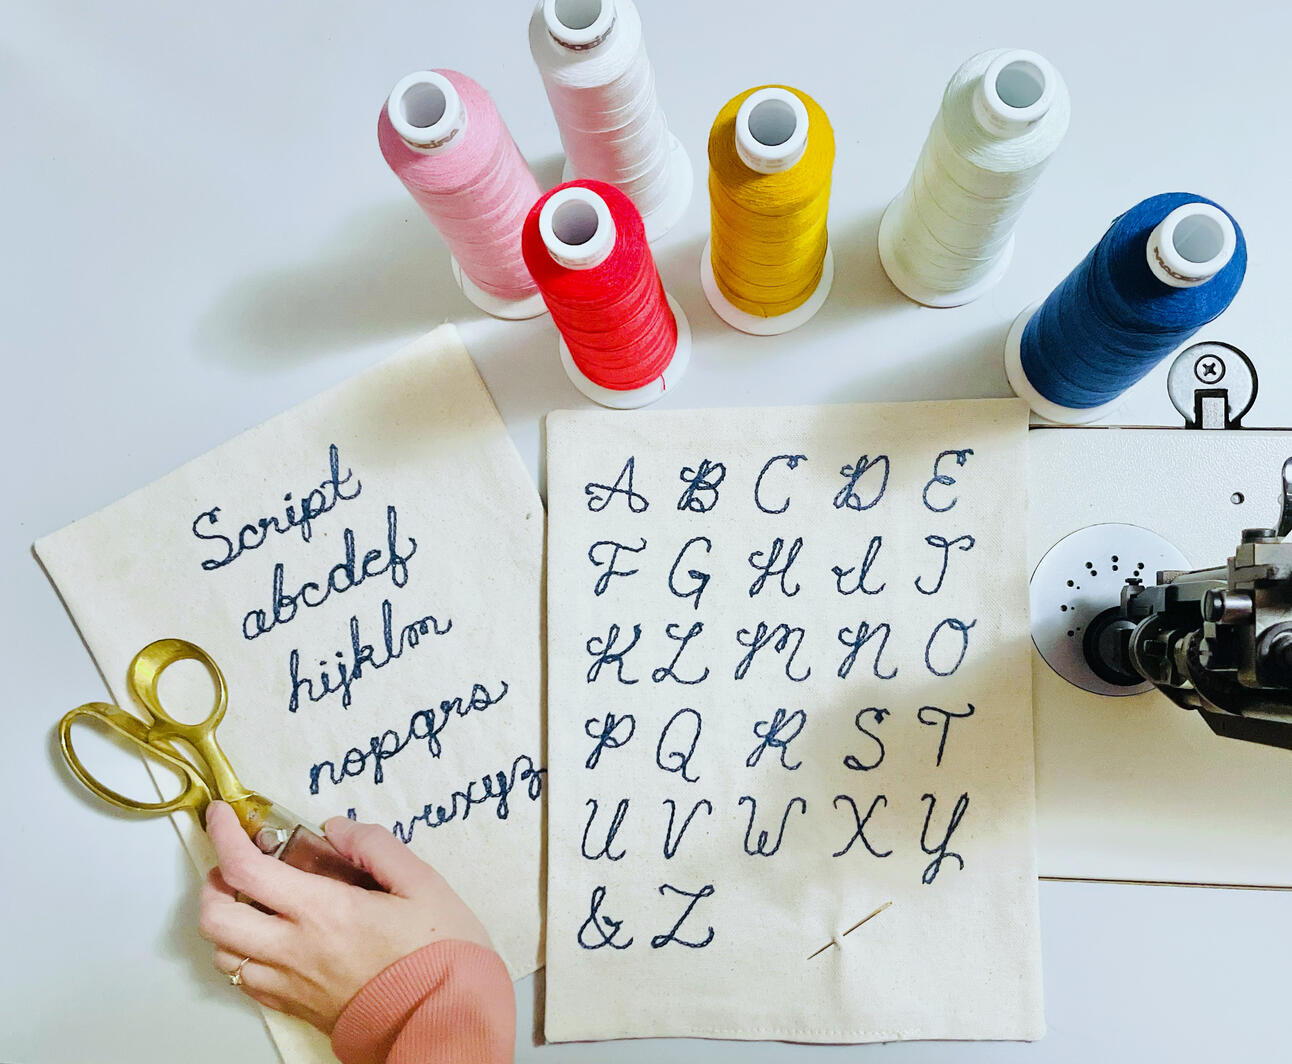 Script
abcdef
hijklm
nopqrs
vwxyz
A B C D E
F G H I J
K L M N O
P Q R S T
U V W X Y
& Z